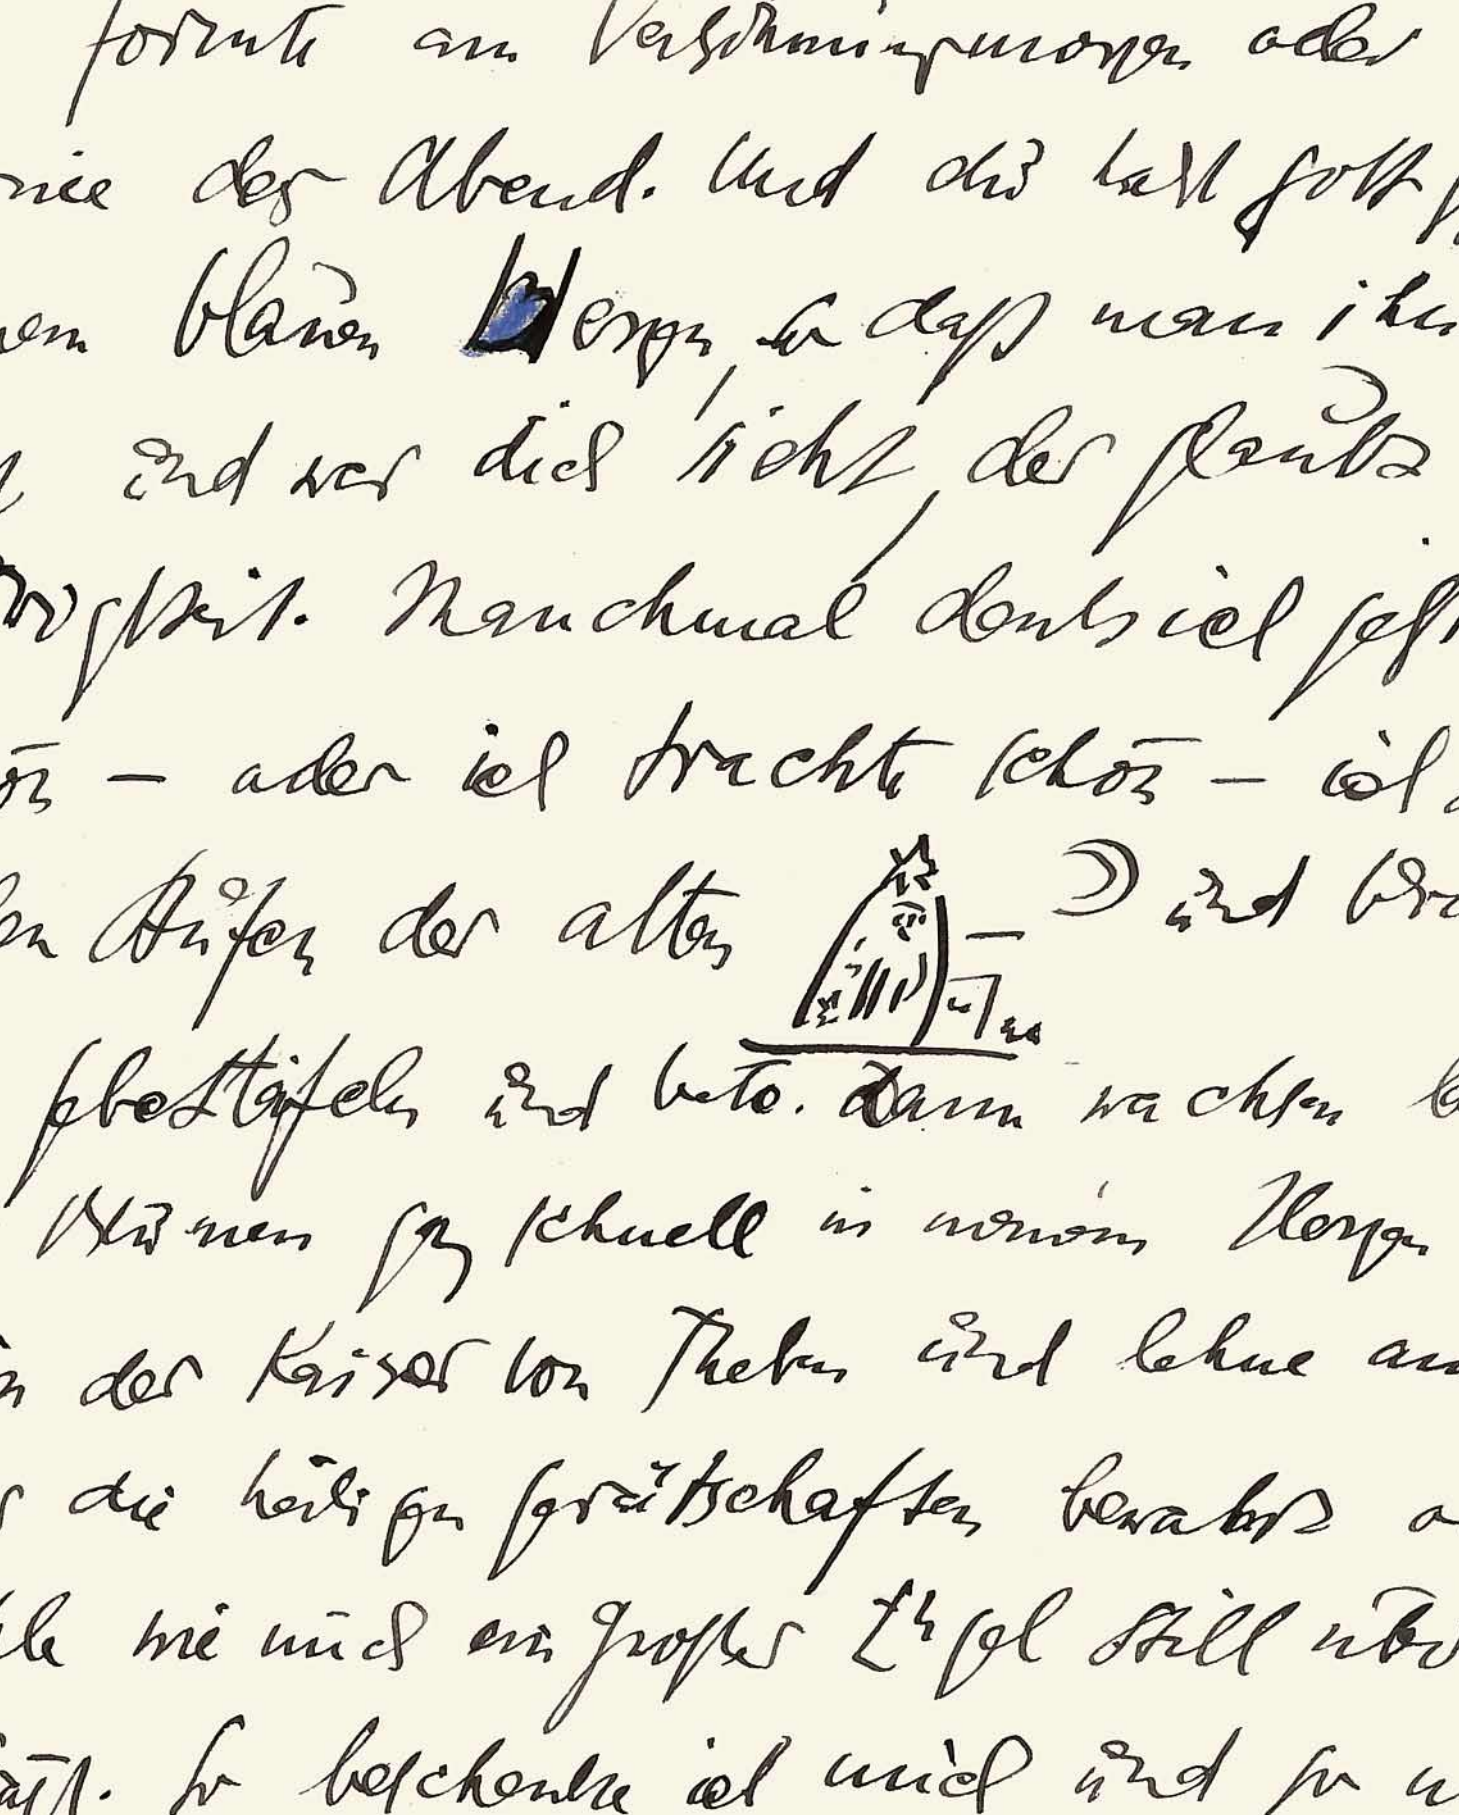 formte am Versöhnungsmorgen oder
wie der Abend. Und du hast Gott
blauen Herzen, so daß man ihn
und wer dich sieht, der glaubt
wigkeit. Manchmal denke ich jetzt
– oder ich trachte schon – ich
Stufen der alten und
gebettäfeln und bete. Dann wachsen
Blumen ganz schnell in meinem Herzen
der Kaiser von Theben und lehne am
die heiligen Gerätschaften bewahrt
wie mich ein großer Engel still über
So beschenke ich mich und so